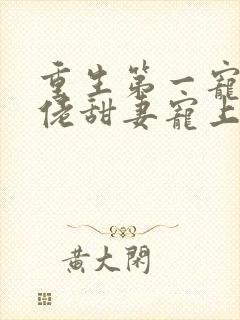 重生第一寵
佬甜妻寵上
黃大閑